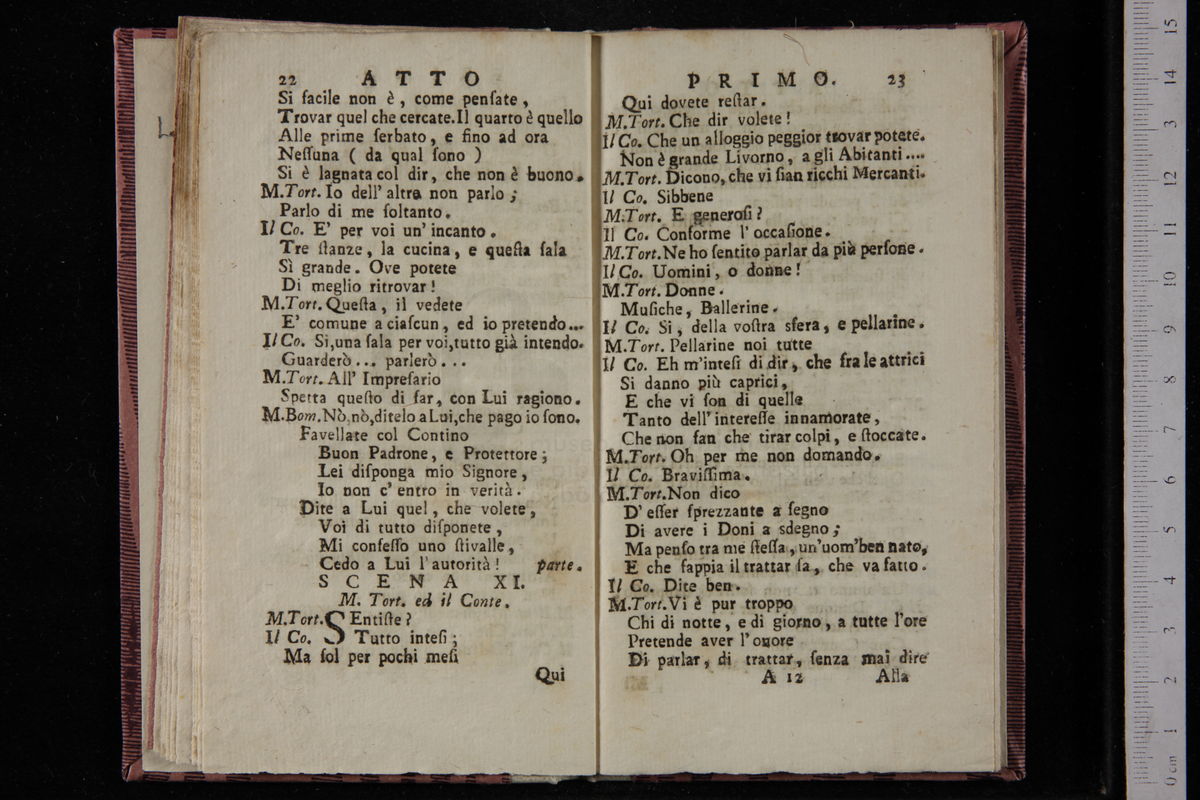 22 ATTO
Si facile non è, come penſate,
Trovar quel che cercate. Il quarto è quello
Alle prime ſerbato, e fino ad ora
Neſſuna ( da qual ſono )
Si è lagnata col dir, che non è buono.
M.Tort. Io dell' altre non parlo ;
Parlo di me ſoltanto.
Il Co. E' per voi un' incanto.
Tre ſtanze, la cucina, e queſta ſala
Sì grande. Ove potete
Di meglio ritrovar !
M.Tort. Queſta, il vedete
E' comune a ciaſcun, ed io pretendo...
Il Co. Si, una ſala per voi, tutto già intendo.
Guarderò... parlerò...
M.Tort. All' Impreſario
Spetta queſto di far, con Lui ragiono.
M.Bom. Nò, nò, ditelo a Lui, che pago io ſono.
Favellate col Contino
Buon Padrone, e Protettore ;
Lei diſponga mio Signore,
Io non c' entro in verità.
Dite a Lui quel, che volete,
Voi di tutto diſponete,
Mi confeſſo uno ſtivalle,
Cedo a Lui l'autorità ! parte.
SCENA XI.
M. Tort. ed il Conte.
M.Tort. SEntiſte ?
Il Co. Tutto inteſi ;
Ma ſol per pochi meſi
Qui
PRIMO. 23
Qui dovete reſtar.
M.Tort. Che dir volete !
Il Co. Che un alloggio peggior trovar potete.
Non è grande Livorno, a gli Abitanti....
M.Tort. Dicono, che vi ſian ricchi Mercanti.
Il Co. Sibbene
M.Tort. E generoſi ?
Il Co. Conforme l' occaſione.
M.Tort. Ne ho ſentito parlar da più perſone.
Il Co. Uomini, o donne !
M.Tort. Donne.
Muſiche, Ballerine.
Il Co. Si, della voſtra sfera, e pellarine.
M.Tort. Pellarine noi tutte
Il Co. Eh m'inteſi di dir, che fra le attrici
Si danno più caprici,
E che vi ſon di quelle
Tanto dell' intereſſe innamorate,
Che non fan che tirar colpi, e ſtoccate.
M.Tort. Oh per me non domando.
Il Co. Braviſſima.
M.Tort. Non dico
D' eſſer ſprezzante a ſegno
Di avere i Doni a sdegno ;
Ma penſo tra me ſteſſa, un'uom'ben nato,
E che ſappia il trattar ſa, che va fatto.
Il Co. Dite ben.
M.Tort. Vi è pur troppo
Chi di notte, e di giorno, a tutte l'ore
Pretende aver l'onore
Di parlar, di trattar, ſenza mai dire
A 12 Alla